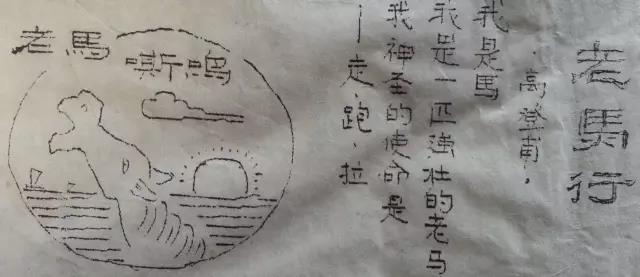 老馬行
·高登·
我是馬
我是一匹强壮的老马
我神圣的使命是
—走、跑、拉
老馬嘶鳴